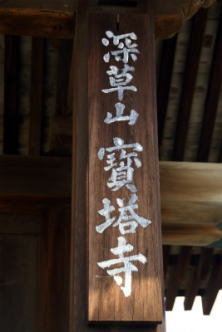 深草山寶塔寺